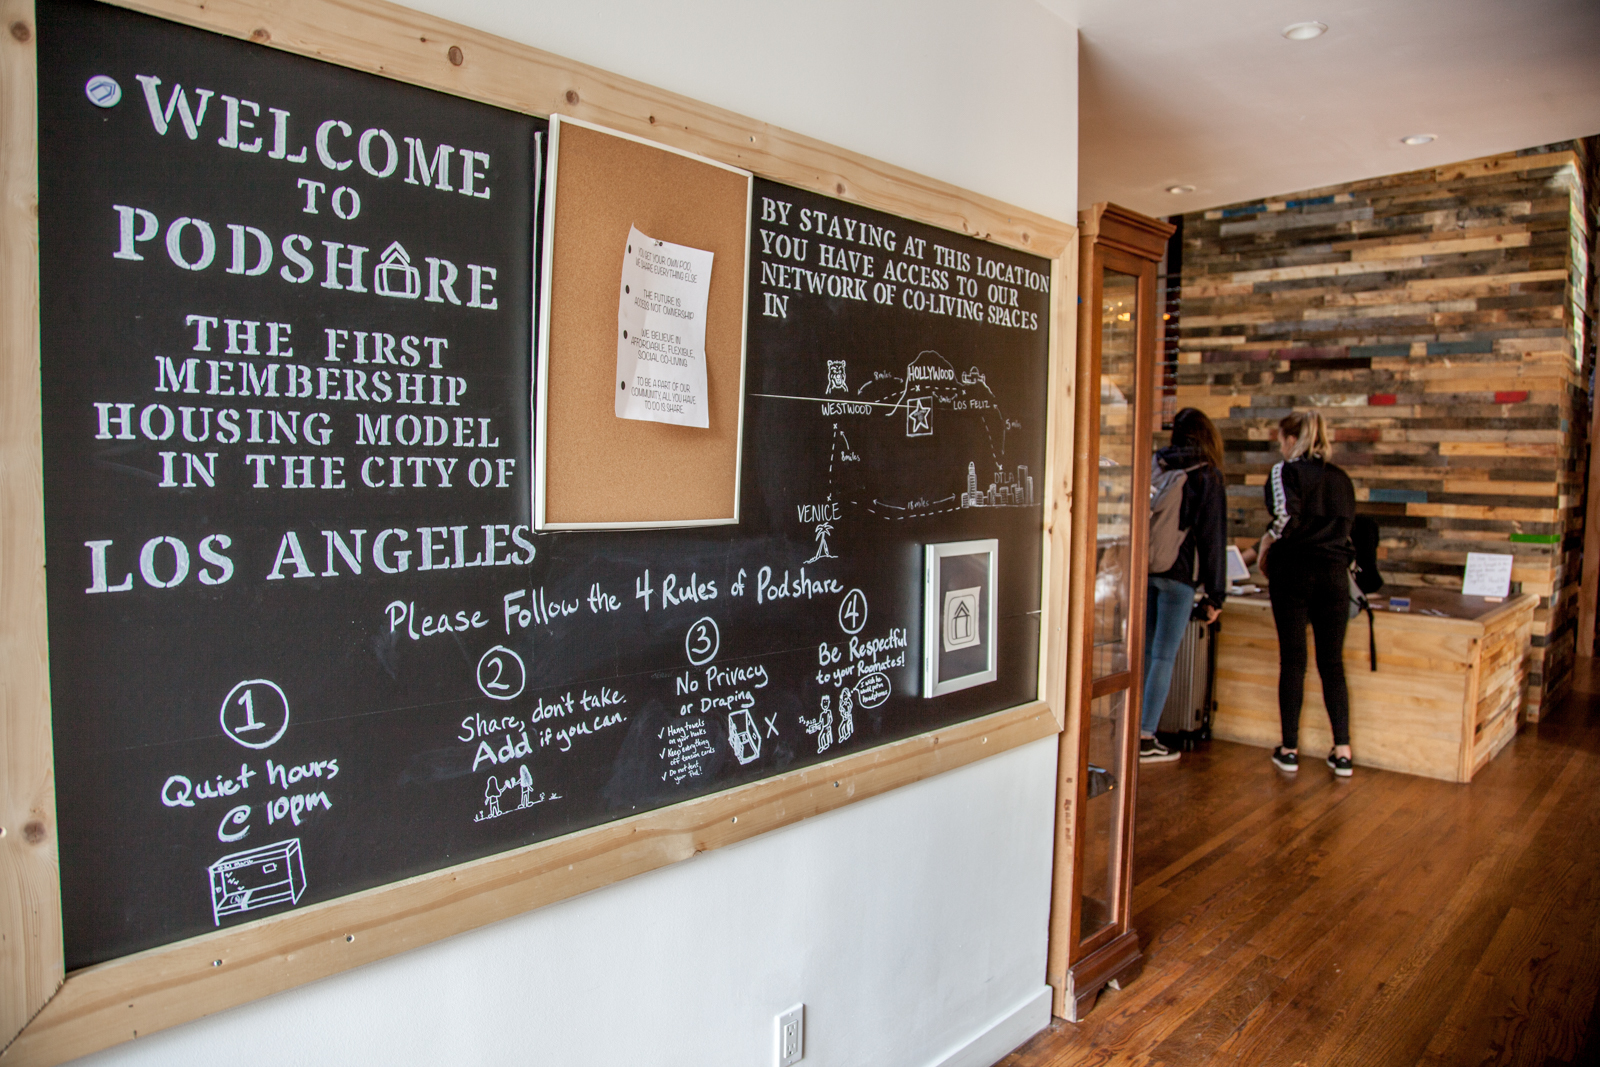 WELCOME
TO
PODSHARE
THE FIRST
MEMBERSHIP
HOUSING MODEL
IN THE CITY OF
LOS ANGELES
YOU GET YOUR OWN POD,
WE SHARE EVERYTHING ELSE
THE FUTURE IS
ACCESS NOT OWNERSHIP
WE BELIEVE IN
AFFORDABLE, FLEXIBLE,
SOCIAL CO-LIVING
TO BE A PART OF OUR
COMMUNITY, ALL YOU HAVE
TO DO IS SHARE.
BY STAYING AT THIS LOCATION
YOU HAVE ACCESS TO OUR
NETWORK OF CO-LIVING SPACES
IN
HOLLYWOOD
8 miles
WESTWOOD
LOS FELIZ
5 miles
8 miles
DTLA
18 miles
VENICE
Please Follow the 4 Rules of Podshare
1
Quiet hours
@ 10pm
2
Share, don't take.
Add if you can.
3
No Privacy
or Draping
✓ Hang towels
on your hooks
✓ Keep everything
off
✓ Do not tent
your Pod!
X
4
Be Respectful
to your Roomates!
I wish he
would put in
headphones